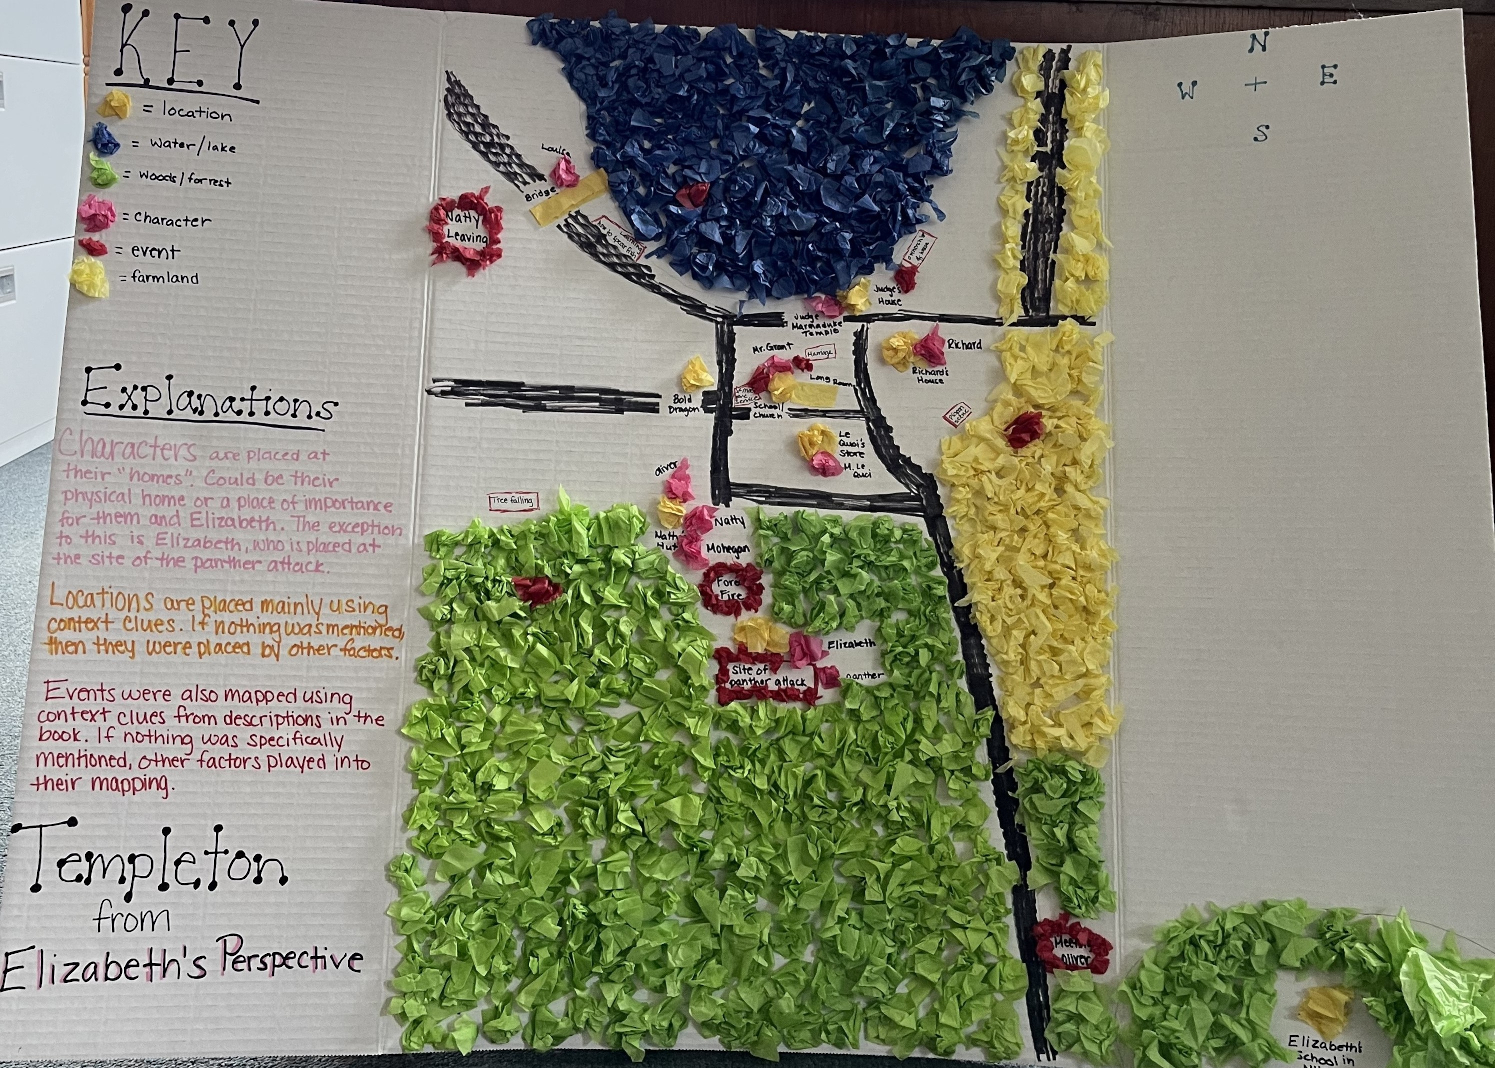 KEY
= location
= water/lake
= woods/forrest
= character
= event
= farmland
Explanations
Characters are placed at
their "homes". Could be their
physical home or a place of importance
for them and Elizabeth. The exception
to this is Elizabeth, who is placed at
the site of the panther attack.
Locations are placed mainly using
context clues. If nothing was mentioned,
then they were placed by other factors.
Events were also mapped using
context clues from descriptions in the
book. If nothing was specifically
mentioned, other factors played into
their mapping.
Templeton
from
Elizabeth's Perspective
N
W + E
S
Louisa
Bridge
Natty
Leaving
Judge's
House
Judge
Marmaduke
Temple
Mr. Grant
Richard
Richard's
House
Long Room
Bold
Dragon
School/
Church
Le
Quoi's
Store
M. Le
Quoi
Oliver
Tree falling
Natty
Hut
Mohegan
Fire
Elizabeth
site of
panther attack
panther
Oliver
Elizabeth's
School in